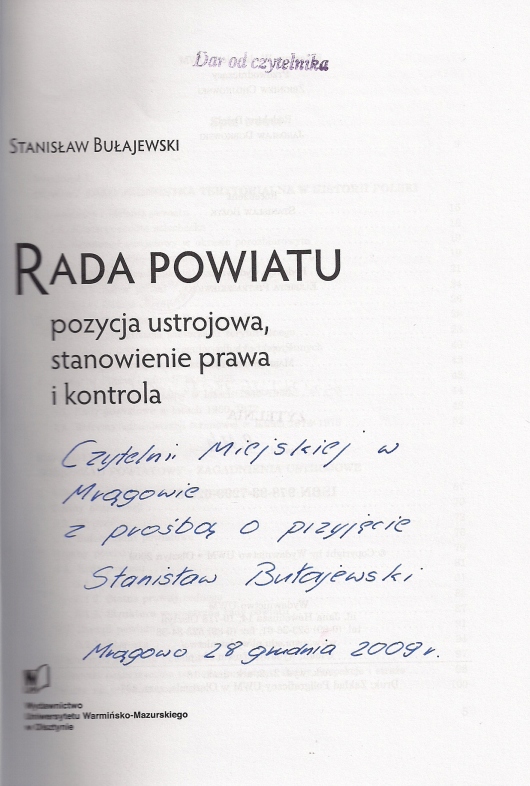 Dar od czytelnika
STANISŁAW BUŁAJEWSKI
RADA POWIATU
pozycja ustrojowa,
stanowienie prawa
i kontrola
Czytelnii Miejskiej w
Mrągowie
z prośbą o przyjęcie
Stanisław Bułajewski
Mrągowo 28 grudnia 2009 r.
Wydawnictwo
Uniwersytetu Warmińsko-Mazurskiego
w Olsztynie